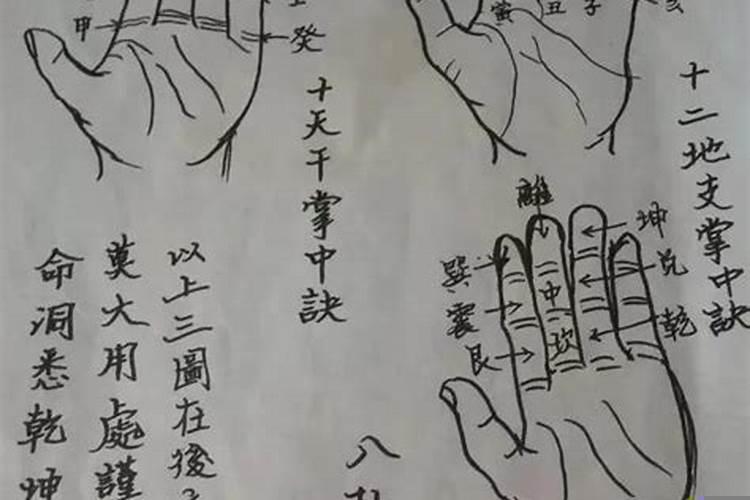 甲
癸
十天干掌中訣
寅 丑 子 亥
十二地支掌中訣
離
巽
震
艮
中
坎
坤
兑
乾
八
以上三圖在後
莫大用處謹
命洞悉乾坤